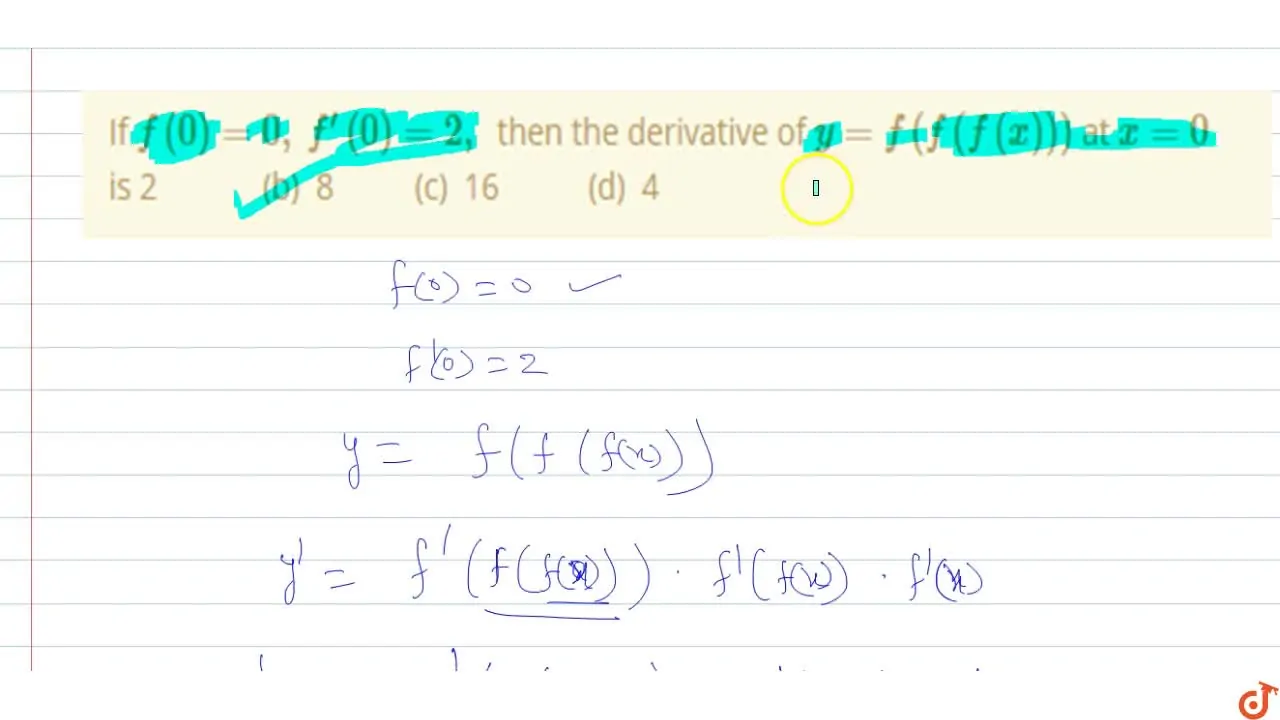 If f(0) = 0, f′(0) = 2, then the derivative of y = f(f(f(x))) at x = 0
is 2 (b) 8 (c) 16 (d) 4
f(0) = 0 ✓
f'(0) = 2
y = f(f(f(x)))
y' = f'(f(f(x))) · f'(f(x)) · f'(x)